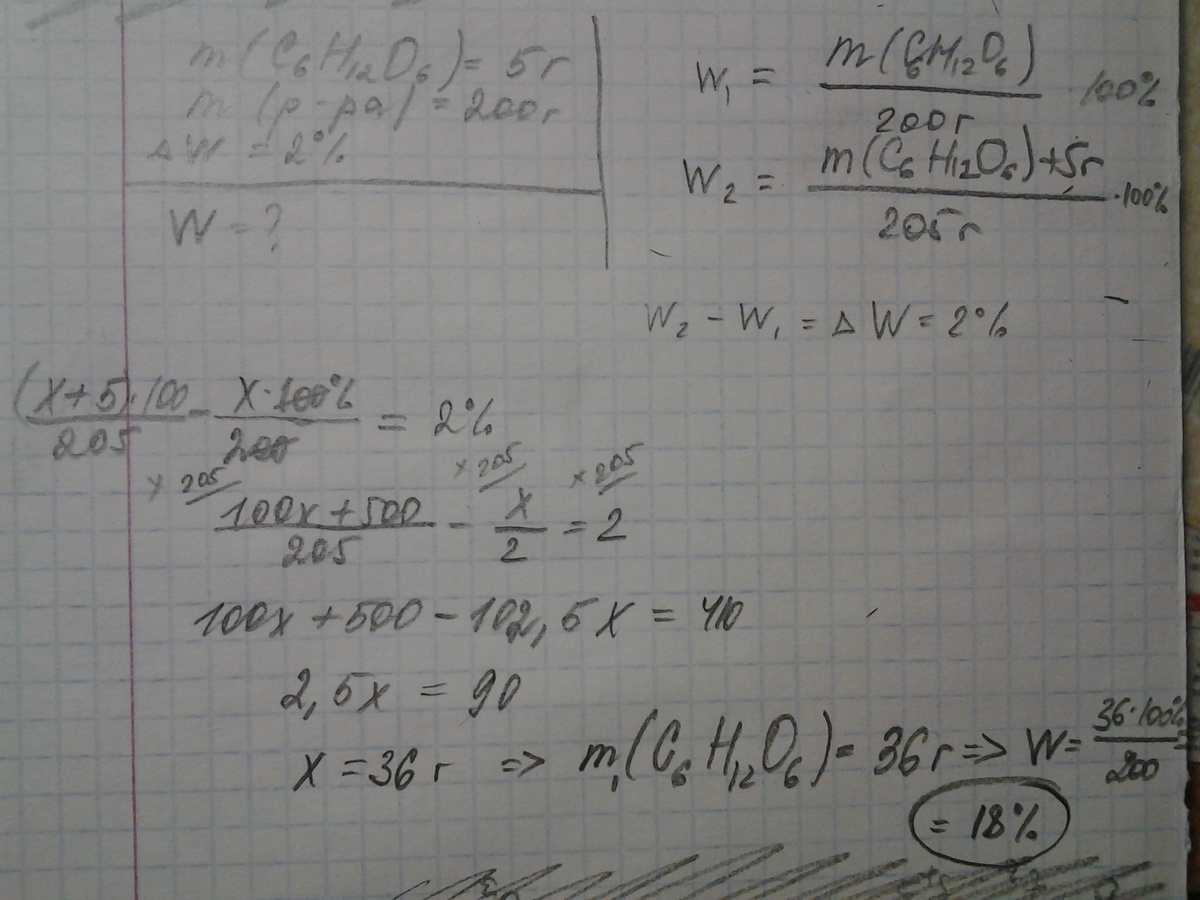 m(C₆H₁₂O₆) = 5г
m(р-ра) = 200г
ΔW = 2%
W = ?
W₁ = m(C₆H₁₂O₆)/200г 100%
W₂ = (m(C₆H₁₂O₆)+5г)/205г ·100%
W₂ - W₁ = ΔW = 2%
(x+5)·100/205 - x·100%/200 = 2%
×205 ×205 ×205
(100x+500)/205 - x/2 = 2
100x + 500 - 102,5x = 410
2,5x = 90
x = 36г => m₁(C₆H₁₂O₆) = 36г => W = 36·100%/200
= 18%